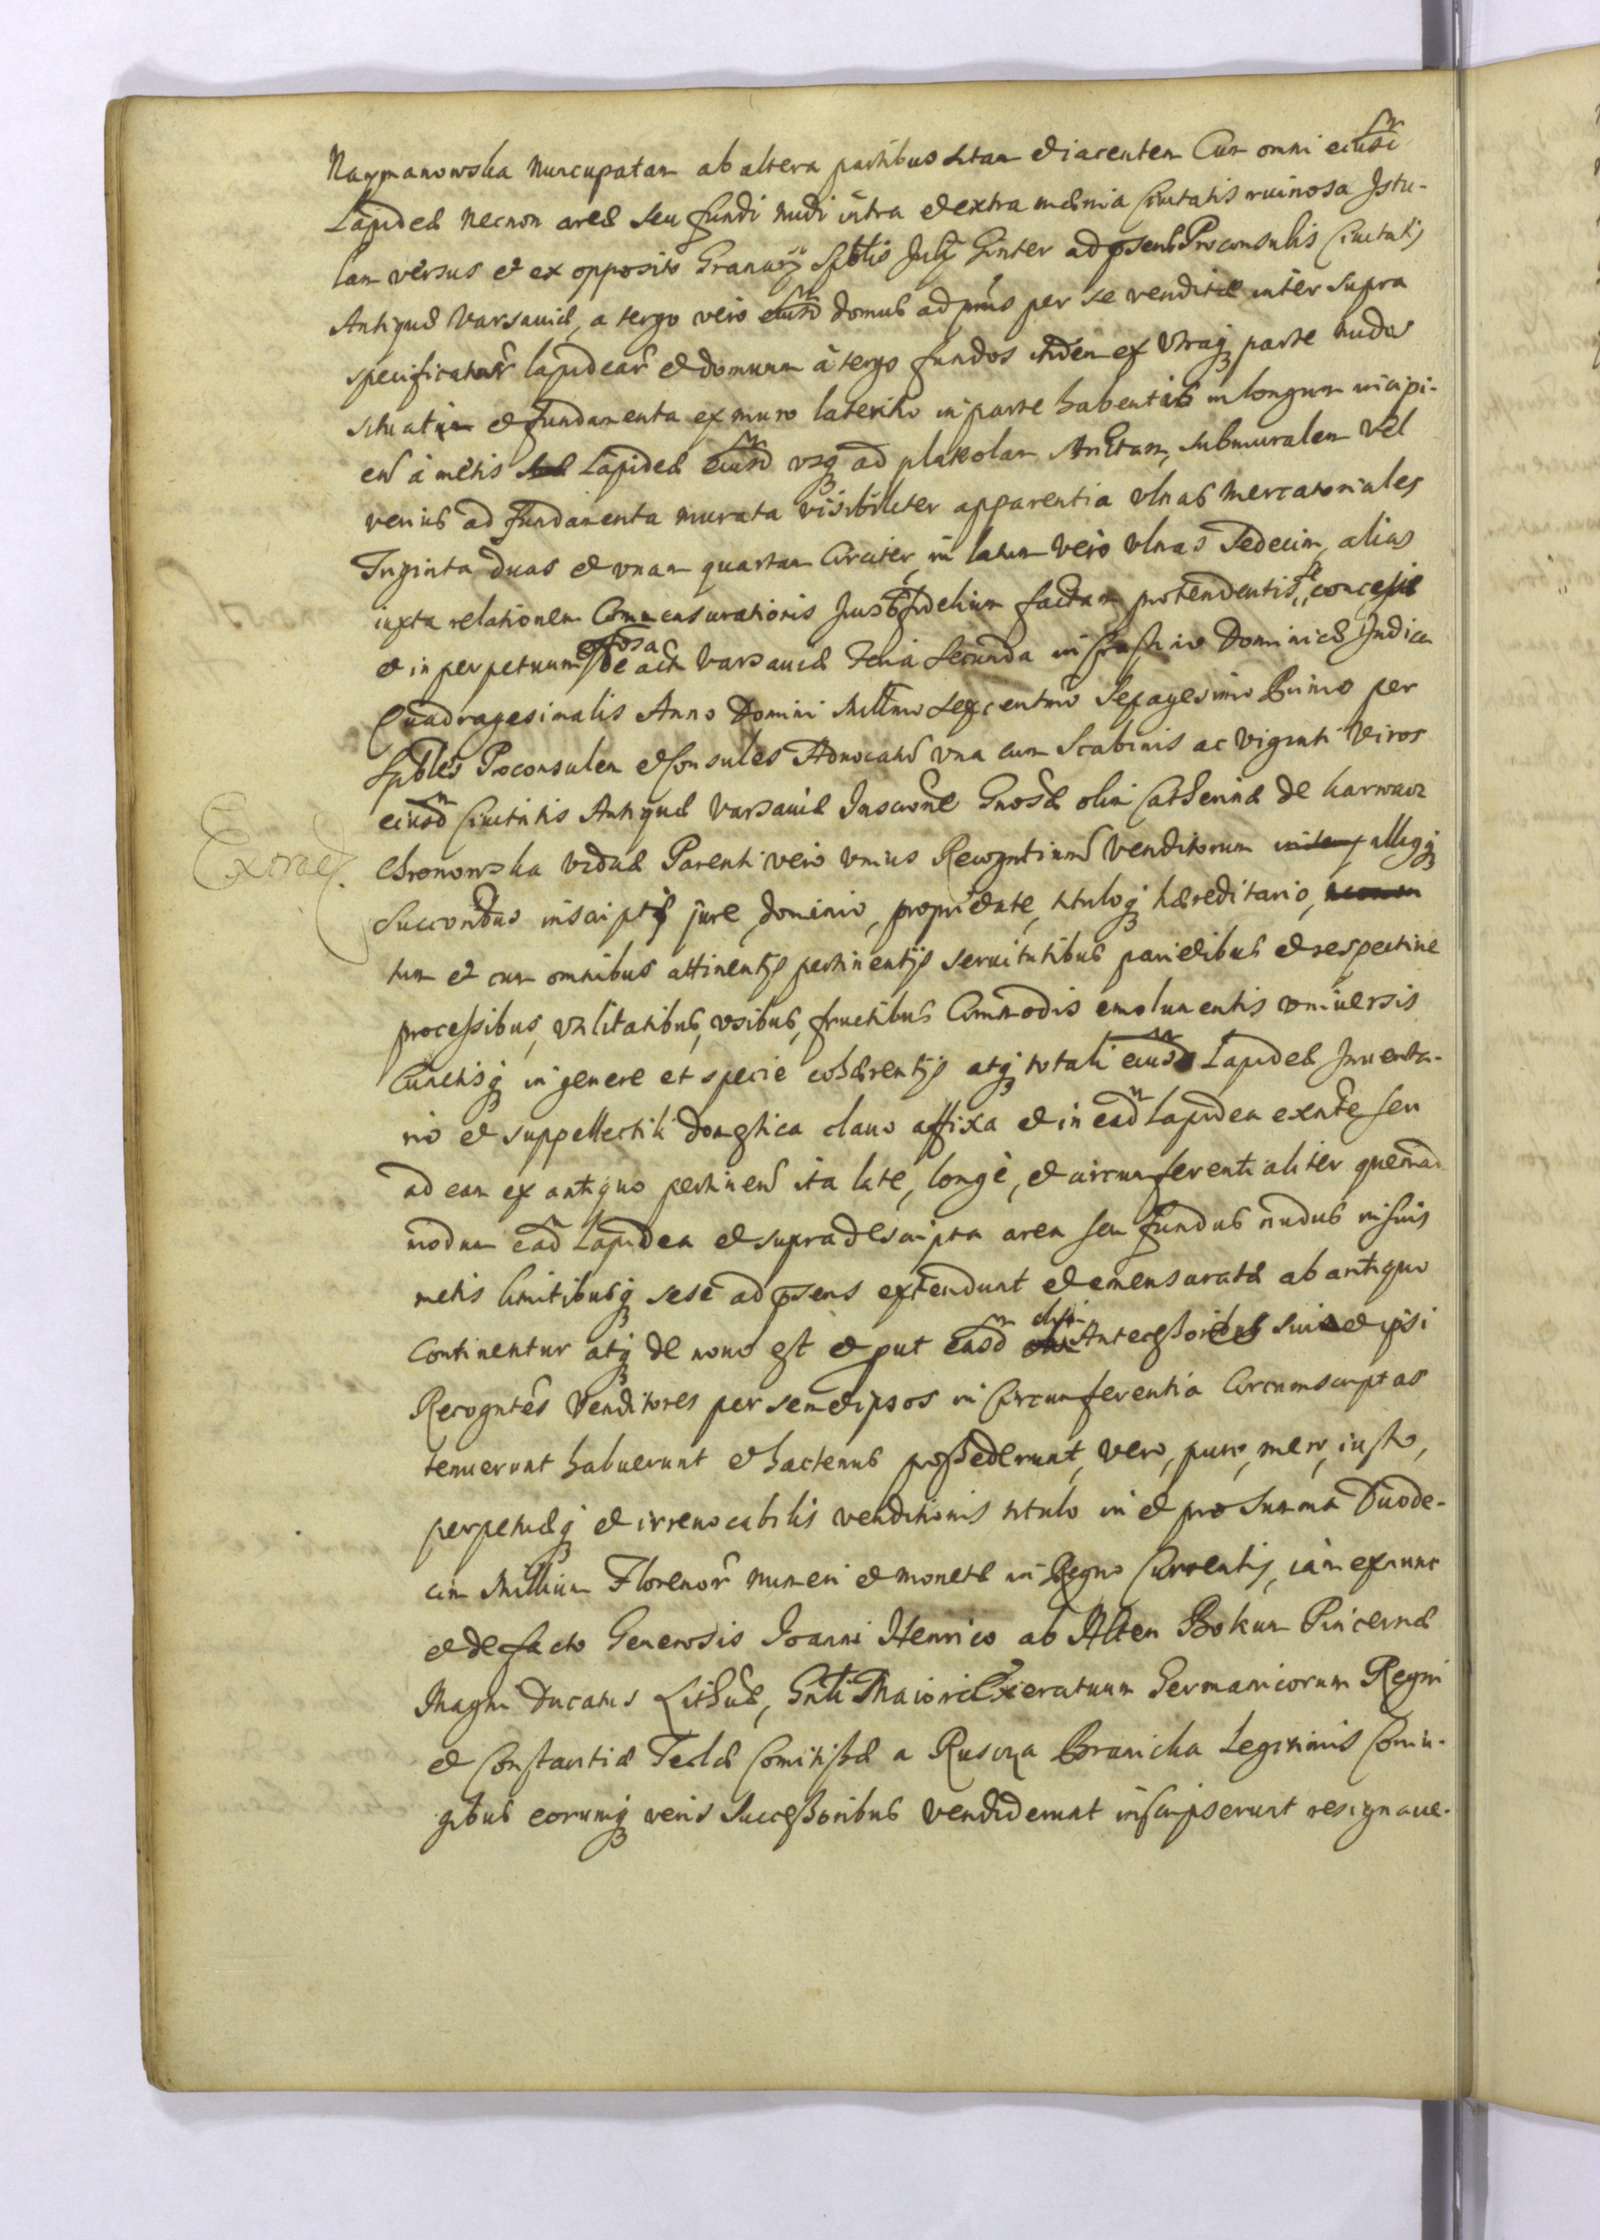 Naymanowska Nuncupatam ab altera partibus sitam et iacentem Cum omni eiusd
Lapideæ Necnon areæ seu fundi nudi intra et extra mænia Civitatis ruinosa Istu-
lam versus et ex opposito Granarij Spblis Julij Ginter ad psens Proconsulis Civitatis
Antiquæ Varsaviæ, a tergo vero eiusd domus ad pñus per se venditæ inter supra
specificatar lapidear et domum à tergo fundos itidem ex Utraq parte nudos
situatum et fundamenta ex muro lateritio in parte habentis in longum incipi-
en à metis Lapideæ eiusd usq ad plateolam Arctam, submuralem vel
verius ad fundamenta murata visibiliter apparentia ulnas Mercatoriales
Triginta duas et unam quartam Circiter, in latum vero ulnas Sedecim, alias
iuxta relationem Commensurationis Jurisfidelium factam protendentis, concessæ
et in perpetuum de act Varsaviæ Feria Secunda in Crastino Dominicæ Judica
Quadragesimalis Anno Domini Millmo sexcentmo Sexagesimo Primo per
Spbles Proconsulem et Consules Advocatu una cum Scabinis ac Viginti Viros
eiusd Civitatis Antiquæ Varsaviæ Inscrone Gnosæ olim Catherinæ de Karwacz
Chronowska viduæ Parenti vero unius Recogntium Venditorum illiusq
Succoribus inscriptæ jure, dominio, proprietate, tituloq hæreditario,
tum et cum omnibus attinentijs pertinentijs servitutibus parietibus et respective
processibus, utilitatibus, usibus, fructibus Commodis emolumentis universis
Cunctisq in genere et specie cohærentijs atq totali eiusd Lapideæ Inventa-
rio et suppellectili domestica clavo affixa et in ead Lapidea exnte seu
ad eam ex antiquo pertinen ita late, longè, et circumferentialiter quemad
modum ead Lapidea et supradescripta area seu fundus nudus in suis
metis limitibusq sese ad psens extendunt et emensuratæ ab antiquo
Continentur atq de novo est et put easd Antecessoribus suis et ipsi
Recogntes Venditores per semetipsos in Circumferentia Circumscriptas
tenuerunt habuerunt et hactenus possederunt, vero, puro, mero, iusto,
perpetuæq et irrevocabilis venditionis titulo in et pro Summa Duode-
cim Millium Florenor numeri et monetæ in Regno Currentis, iam exnunc
et defacto Generosis Joanni Henrico ab Alten Bokum Pincernæ
Magni Ducatus Lithuæ, Gnli Maiori Exercituum Germanicorum Regni
et Constantiæ Teclæ Comitissæ a Ruscza Branicka Legitimis Coniu-
gibus eorumq veris Successoribus vendiderunt inscripserunt resignave-